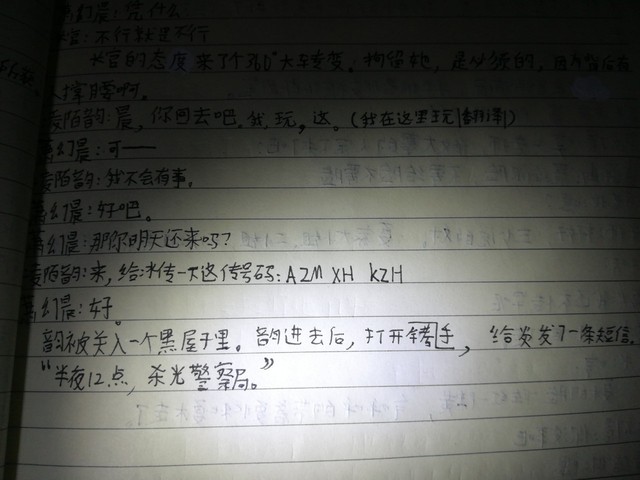 幻晨:凭什么
官:不行就是不行
长官的态度来了个360°大转变。拘留她,是必须的,因为背后有
人撑腰啊。
陌韵:晨,你回去吧。我,玩,这。(我在这里玩|翻译|)
幻晨:可——
陌韵:我不会有事。
幻晨:好吧。
幻晨:那你明天还来吗?
陌韵:来,给冰传一下这传号码:AZM XH KZH
幻晨:好。
韵被关入一个黑屋子里。韵进去后,打开手,给炎发了一条短信,
“半夜12点,杀光警察局。”